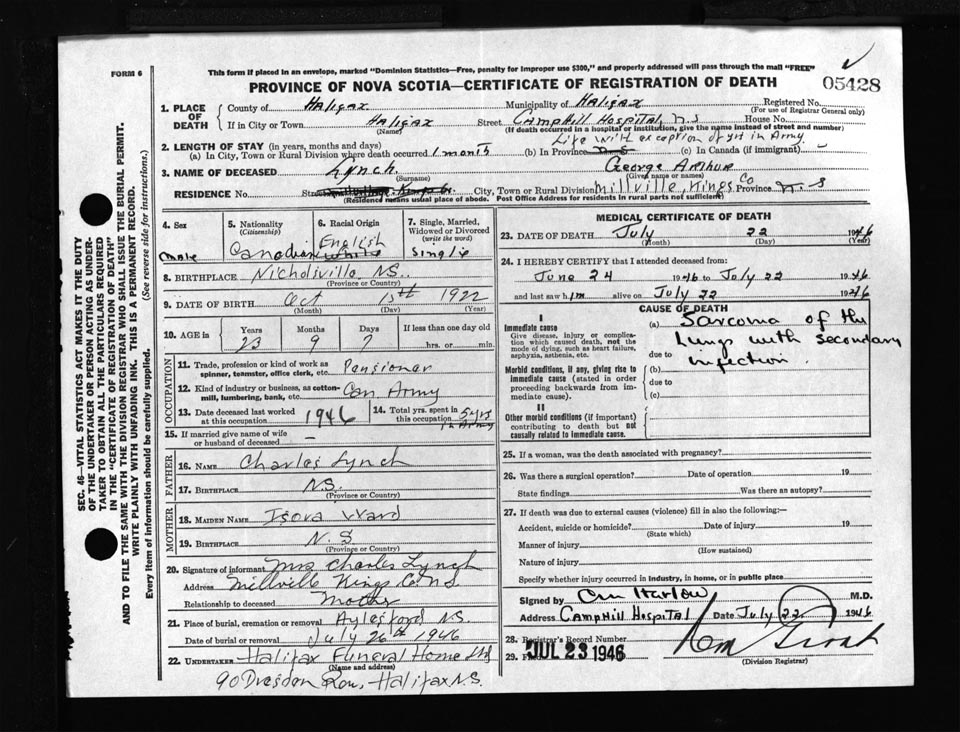 FORM 6
This form if placed in an envelope, marked "Dominion Statistics—Free, penalty for improper use $300," and properly addressed will pass through the mail "FREE"
PROVINCE OF NOVA SCOTIA—CERTIFICATE OF REGISTRATION OF DEATH
05428
1. PLACE OF DEATH
County of Halifax Municipality of Halifax Registered No.
(For use of Registrar General only)
If in City or Town Halifax Street Camphill Hospital, N.S House No.
(Name) (If death occurred in a hospital or institution, give the name instead of street and number)
Life with exception of yrs in Army
2. LENGTH OF STAY (in years, months and days)
(a) In City, Town or Rural Division where death occurred 1 month (b) In Province N.S (c) In Canada (if immigrant)
3. NAME OF DECEASED Lynch. George Arthur
(Surname) (Given name or names)
RESIDENCE No. Street City, Town or Rural Division Millville, Kings Co Province N.S
(Residence means usual place of abode. Post Office Address for residents in rural parts not sufficient)
4. Sex Male
5. Nationality (Citizenship) Canadian
6. Racial Origin English White
7. Single, Married, Widowed or Divorced (write the word) Single
8. BIRTHPLACE Nicholsville N.S.
(Province or Country)
9. DATE OF BIRTH Oct 15th 1922
(Month) (Day) (Year)
10. AGE in Years Months Days If less than one day old
23 9 7 hrs. or min.
OCCUPATION
11. Trade, profession or kind of work as spinner, teamster, office clerk, etc. Pensioner
12. Kind of industry or business, as cotton-mill, lumbering, bank, etc. Can Army
13. Date deceased last worked at this occupation 1946
14. Total yrs. spent in this occupation 5 yrs in Army
15. If married give name of wife or husband of deceased –
FATHER
16. NAME Charles Lynch
17. BIRTHPLACE N.S.
(Province or Country)
MOTHER
18. MAIDEN NAME Isora Ward
19. BIRTHPLACE N.S
(Province or Country)
20. Signature of informant Mrs Charles Lynch
Address Millville Kings Co N.S
Relationship to deceased Mother
21. Place of burial, cremation or removal Aylesford N.S.
Date of burial or removal July 26th 1946
22. UNDERTAKER Halifax Funeral Home Ltd
(Name and address)
90 Dresden Row, Halifax N.S.
MEDICAL CERTIFICATE OF DEATH
23. DATE OF DEATH July 22 1946
(Month) (Day) (Year)
24. I HEREBY CERTIFY that I attended deceased from:
June 24 1946 to July 22 1946
and last saw him alive on July 22 1946
CAUSE OF DEATH
I
Immediate cause
Give disease, injury or complication which caused death, not the mode of dying, such as heart failure, asphyxia, asthenia, etc.
Morbid conditions, if any, giving rise to immediate cause (stated in order proceeding backwards from immediate cause).
II
Other morbid conditions (if important) contributing to death but not causally related to immediate cause.
(a) Sarcoma of the
Lungs with secondary
due to infection.
(b)
due to
(c)
25. If a woman, was the death associated with pregnancy?
26. Was there a surgical operation? Date of operation 19
State findings Was there an autopsy?
27. If death was due to external causes (violence) fill in also the following:—
Accident, suicide or homicide? Date of injury 19
(State which)
Manner of injury
(How sustained)
Nature of injury
Specify whether injury occurred in industry, in home, or in public place
Signed by Harlow M.D.
Address Camphill Hospital Date July 22 1946
28. Registrar's Record Number
29. JUL 23 1946
(Division Registrar)
SEC. 46—VITAL STATISTICS ACT MAKES IT THE DUTY
OF THE UNDERTAKER OR PERSON ACTING AS UNDERTAKER TO OBTAIN ALL THE PARTICULARS REQUIRED
IN THE "CERTIFICATE OF REGISTRATION OF DEATH"
AND TO FILE THE SAME WITH THE DIVISION REGISTRAR WHO SHALL ISSUE THE BURIAL PERMIT.
WRITE PLAINLY WITH UNFADING INK. THIS IS A PERMANENT RECORD.
Every item of information should be carefully supplied. (See reverse side for instructions.)